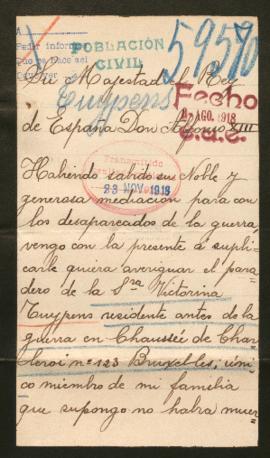 A
Pedir inform
que se hace así
POBLACIÓN
CIVIL
59570
Su Majestad el Rey
Cuypens
Fecho
AGO. 1918
de España Don Alfonso XIII
Habiendo sabido su Noble y
generosa mediación para con
23 NOV. 1918
los desaparecidos de la guerra,
vengo con la presente á supli-
carle quiera averiguar el para-
dero de la Sra Victorina
Cuypens residente antes de la
guerra en Chaussée de Char-
leroi nº 123 Bruxelles, úni-
co miembro de mi familia
que supongo no habrá muer-